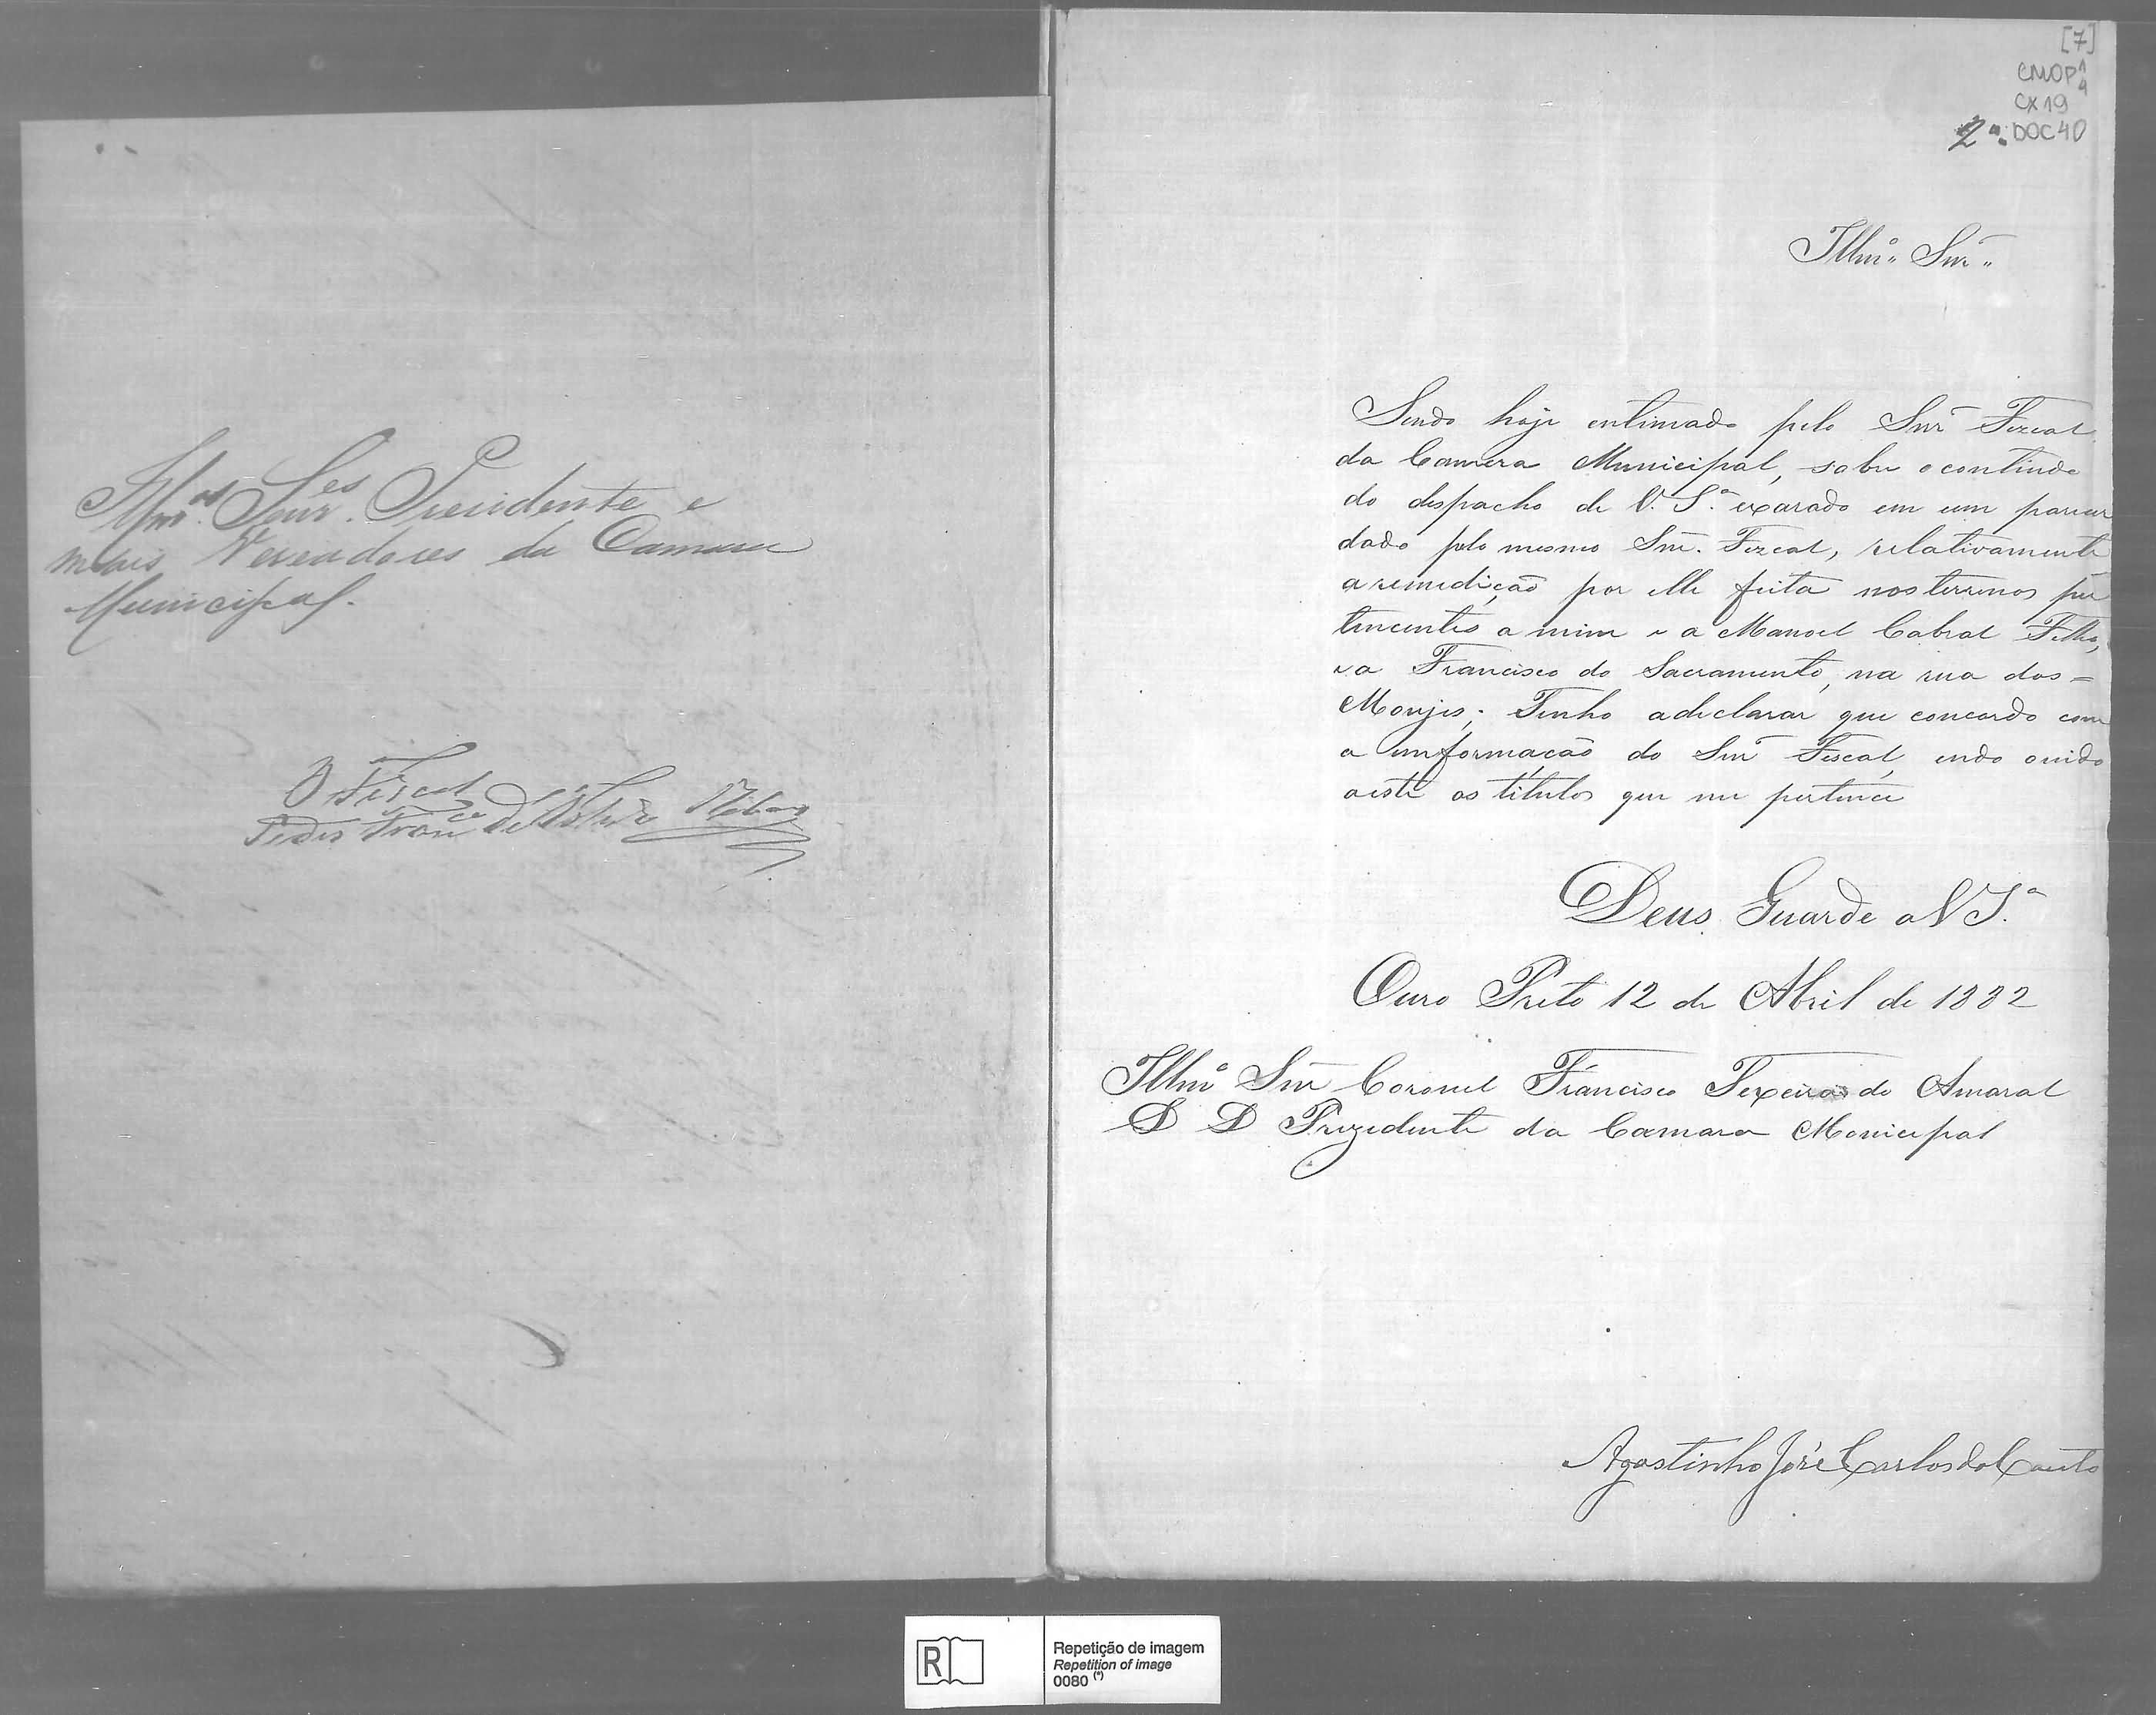 Illm.os Senr.es Prezidente e
mais Vereadores da Camara
Municipal.
O Fiscal
Pedro Franco de
[7]
CMOP 1/4
CX 19
2ª. DOC 40
Illmº Snr
Sendo hoje entimado pelo Snr Fiscal
da Camera Municipal, sobre o contindo
do despacho de V. Sª. exarado em um parecer
dado pelo mesmo Snr. Fizcal, relativamente
a remedição por elle feita nos terrenos per
tencentes a mim e a Manoel Cabral Filho,
e a Francisco do Sacramento, na rua dos =
Monjes; Tenho a declarar que concordo com
a imformação do Snr Fiscal,
os titulos que me pertence
Deus Guarde a V Sª
Ouro Preto 12 de Abril de 1882
Illmº Snr Coronel Francisco Texeira do Amaral
D D Prezidente da Camara Monicipal
Agostinho José Carlos do Couto
R
Repetição de imagem
Repetition of image
0080 (*)